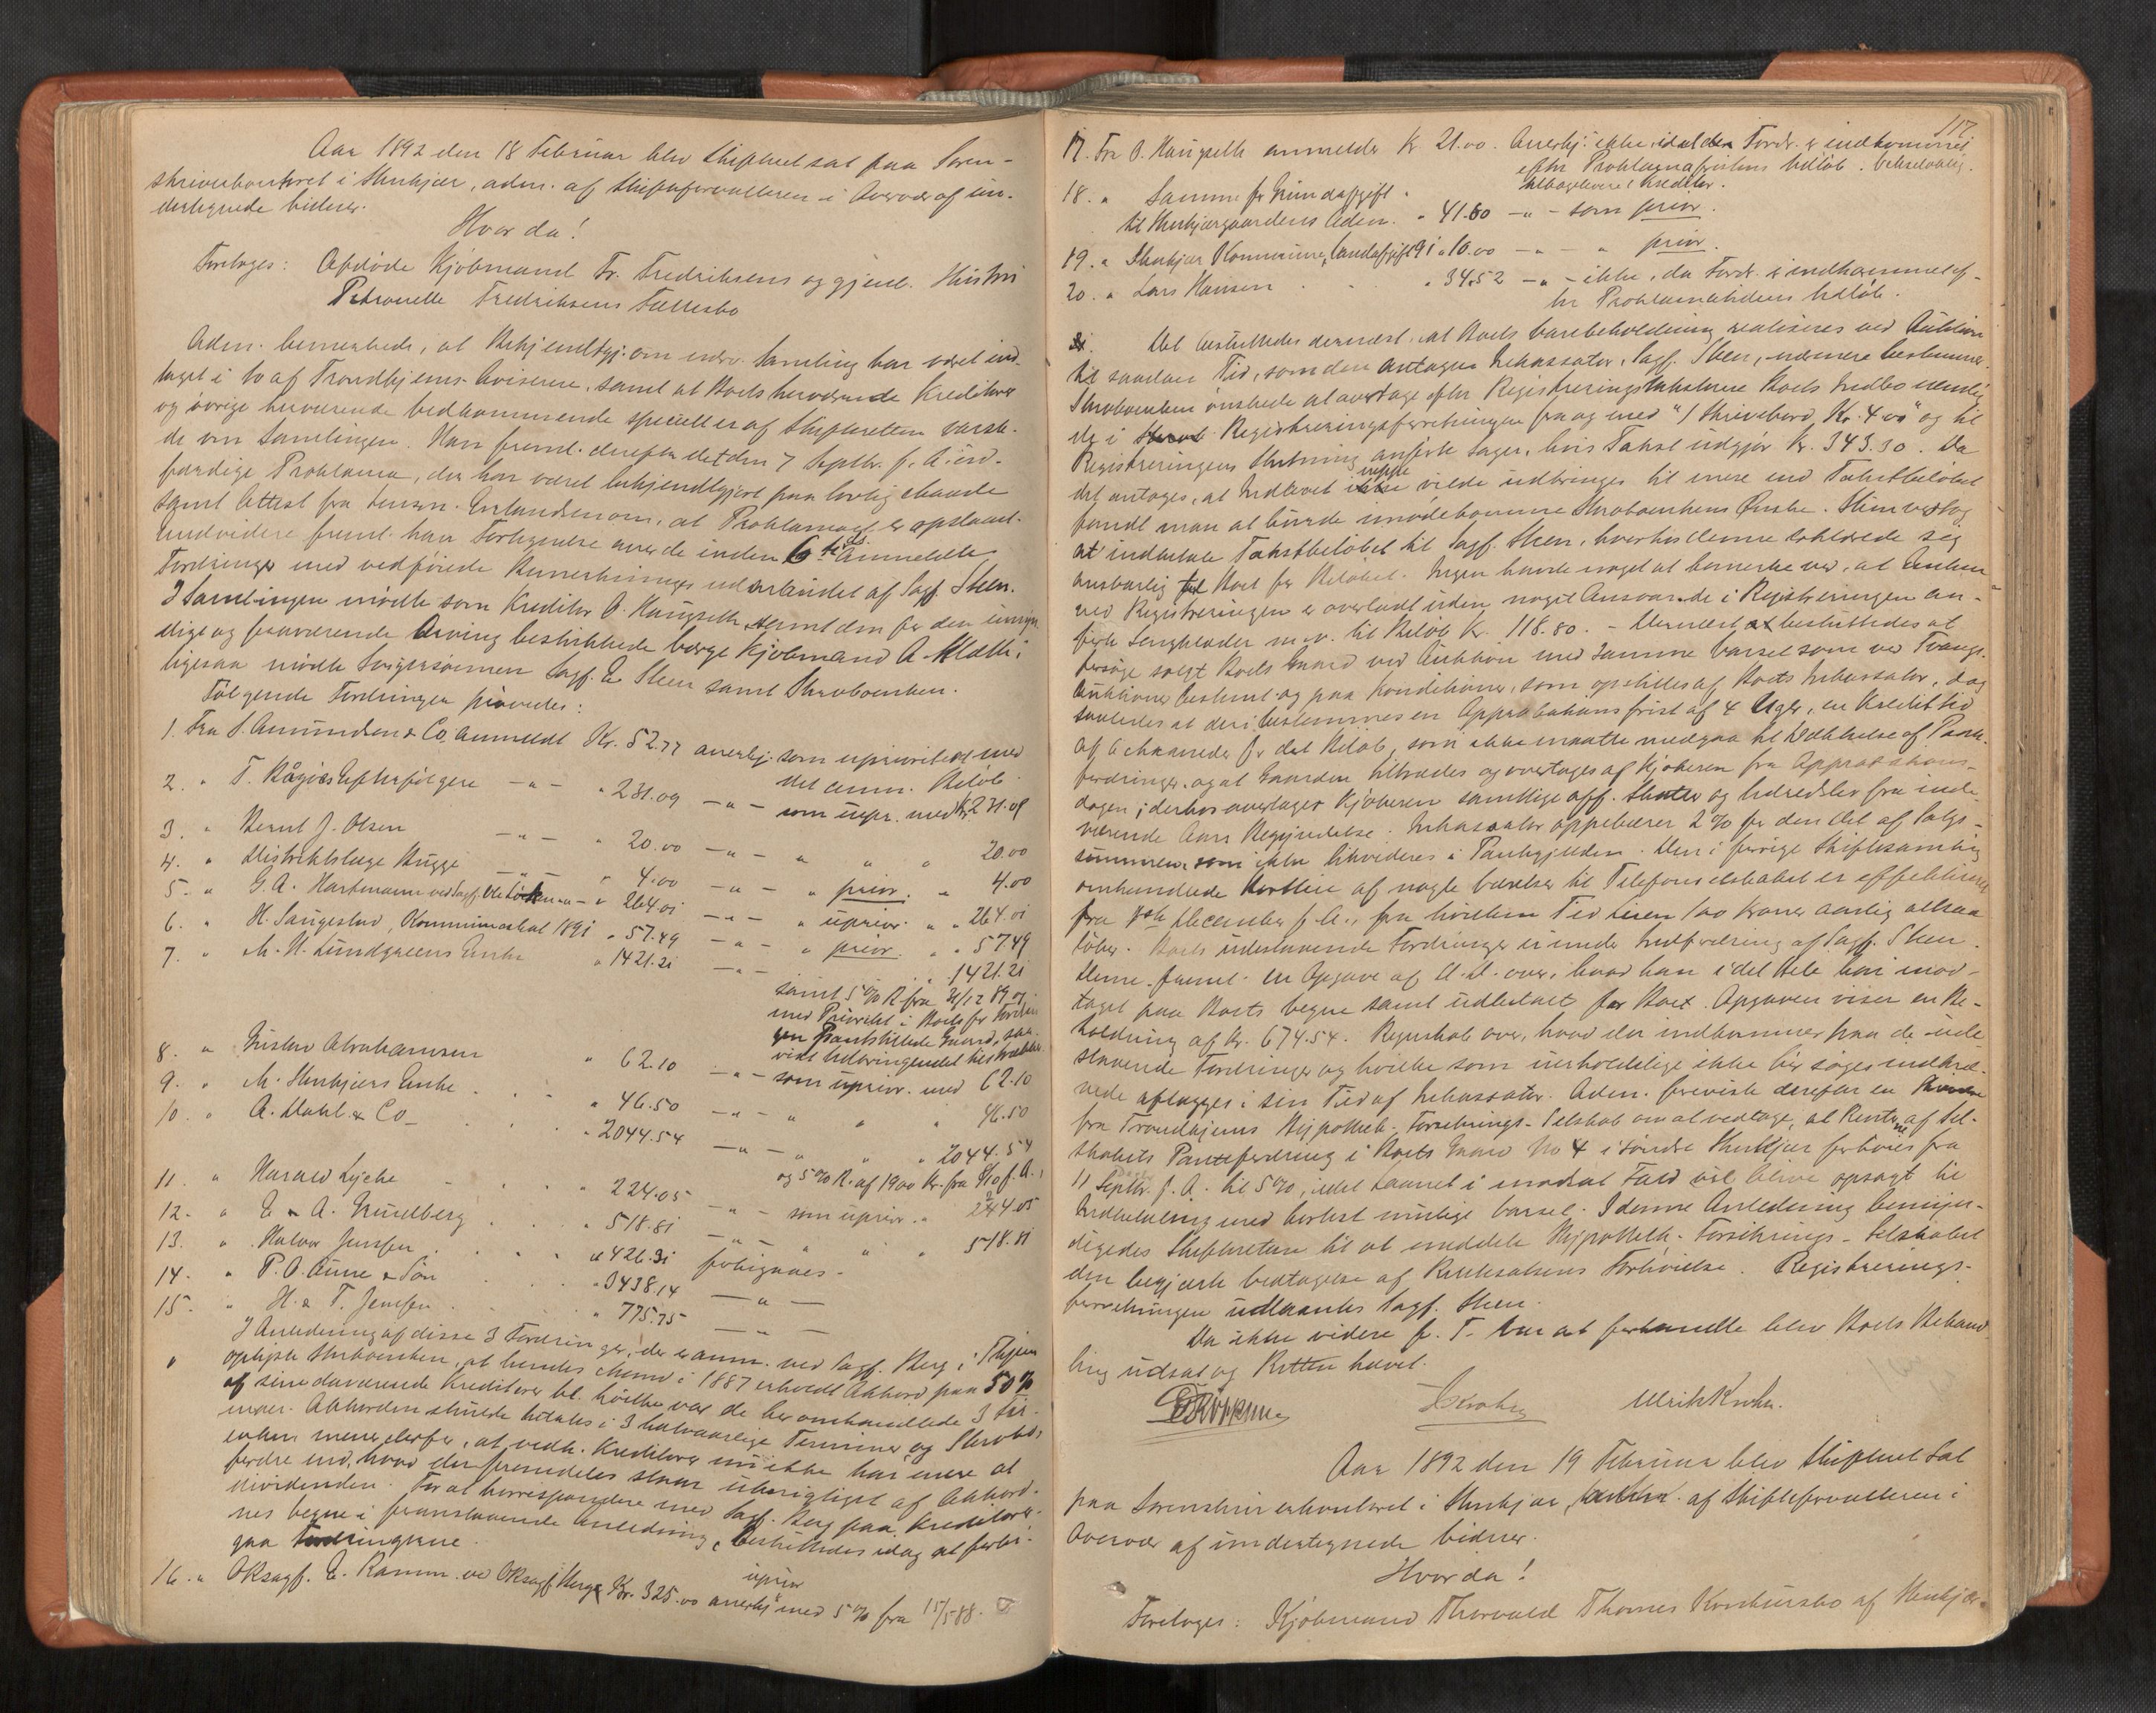 Aar 1892 den 18 Februar blev Skifteret sat paa Soren-
skriverkontoret i Stenkjær, adm. af Skifteforvalteren i Overvær af un-
dertegnede Vidner.
Hvorda!
Foretoges: Afdöde Kjöbmand Fr. Fredriksens og gjenl. Hustru
Petronelle Fredriksens Fællesbo
Adm. bemerkede, at Bekjendtgj. om endv. Samling har været ind-
taget i to af Trondhjems-Aviserne, samt at Boets herværende Kreditorer
og övrige herværende Vedkommende specielt er af Skifteretten varsle-
de om Samlingen. Han freml. derefter det den 7 Septbr. f. A. ud-
færdige Proklama, der har været bekjendtgjort paa lovlig Maade
samt Attest fra Lensm. Erlandsen om, at Proklamaet er opslaaet.
Endvidere freml. han Fortegnelse over de inden Ctids anmeldte
Fordringer med vedföiede Bemerkninger udarbeidet af Sagf. Steen.
I Samlingen mödte som Kreditor O. Haugseth, samt den for den umyn-
dige og fraværende Arving beskikkede Verge Kjöbmand A. Klætte;
ligesaa mödte Svigersönnen Sagf. E. Steen samt Skröboenken.
Fölgende Fordringer prövedes:
1. Fra S. Amundsen & Co. anmeldt Kr. 52.77 anerkj. som uprioriteret med
det anm. Belöb
2. " T. Efterfölgere -"- " 231.09 -"- som upr. med Kr 231.09
3. " Bernt J. Olsen -"- " 20.00 -"- " " " 20.00
4. " Distriktslæge Bugge -"- " 4.00 -"- " prior. " 4.00
5. " G. A. Hartmann ved Sagf. -"- " 264.01 -"- " uprior. " 264.01
6. " H. Saugestad, Kommuneskat 1891 " 57.49 -"- " prior. " 57.49
7. " M. H. Lundgreens Enke " 1421.21 -"- " 1421.21
samt 5% R. fra 31/12 89 og
med Prioritet i Boets for Fordrin
gen Pantstillede Gaard, saa-
vidt Udbringendet
8. " Gustav Abrahamsen " 62.10 -"- som uprior. med 62.10
9. " M. Stenkjers Enke . " 46.50 -"- " " " 46.50
10. " A. Dahl & Co - . . " 2044.54 -"- " " " 2044.54
og 5% R. af 1900 Kr. fra 8/10 f. A.
11. " Harald Lyche . . . 224.05 -"- som uprior. " 224.05
12. " E & A. Grudberg . . . " 518.81 -"- " " " 518.81
13. " Halvor Jenssen . . . " 426.31 forbigaaes -
14. " P. O. Aune & Sön . . " 3438.14 -"-
15. " H. & T. Jenssen . . " 775.75 -"-
I Anledning af disse 3 Fordringer, der er anm. ved Sagf. Berg i Thjem
oplyste Skrboenken, at hendes Mand i 1887 erholdt Akkord paa 50%
af sine daværende Kreditorer bl. hvilke var de her omhandlede 3 Fir-
maer. Akkorden skulde betales i 3 halvaarlige Terminer og Skrbo-
enken mener derfor, at vedk. Kreditorer nu ikke har mere at
fordre end, hvad der fremdeles staar uberigtiget af Akkord-
dividenden. For at korrespondere med Sagf. Berg paa Kreditorer-
nes Vegne i foranstaaende Anledning, besluttedes idag at forbi-
gaa Fordringerne.
16. " OKsagf. E. Ramm ved OKsagf Kr. 325.00 anerkj uprior med 5% fra 15/5 88.
117.
17. Fra O. Haugseth anmeldt Kr. 21.00. Anerkj. ikke, idet den Fordr. er indkommet
efter Proklamafristens Udlöb.
18. " Samme for Grundafgift
til Stenkjærgaardens Adm. " 41.60 -"- som prior.
19. " Stenkjær Kommune, 91 " 10.00 -"- " prior.
20. " Lars Hansen . . " 34.52 -"- ikke, da Fordr. er indkommet ef-
ter Proklamatidens Udlöb.
Det besluttedes dernæst, at Boets Varebeholdning realiseres ved Auktion
til saadan Tid, som den antagne Inkassator, Sagf. Steen, nærmere bestemmer.
Skrboenken önskede at overtage efter Registreringstaksterne Boets Indbo nemlig
de i Registreringsforretningen fra og med "1 Skrivebord Kr. 4.00" og til
Registreringens Slutning anförte Sager, hvis Takst udgjör Kr. 343.30. Da
det antages, at Indboet neppe vilde udbringes til mere end Takstbelöbet
fandt man at burde imödekomme Skrboenkens Önske. Hun vedtog
at indbetale Takstbelöbet til Sagf. Steen, hvorhos denne erklærede sig
ansvarlig til Boet for Belöbet. Ingen havde noget at bemerke ved, at Enken
ved Registreringen er overladt uden noget Ansvar de i Registreringen an-
förte Sengklæder m.v. til Belöb Kr. 118.80. - Dernæst besluttedes at
forsöge solgt Boets Gaard ved Auktion med samme Varsel som ved Tvangs-
auktioner bestemt og paa Konditioner, som opstilles af Boets Inkassator, dog
saaledes at der bestemmes en Approbationsfrist af 4 Uger, en Kredittid
af 6 Maaneder for det Belöb, som ikke maatte medgaa til Dækkelse af Pante-
fordringer, og at Gaarden tiltrædes og overtages af Kjöberen fra Approbations-
dagen; derhos overtager Kjöberen samtlige off. Skatter og Udredsler fra inde-
værende Aars Begyndelse. Inkassator oppebærer 2% for den Del af Salgs-
summen, som ikke likvideres i Pantegjælden. Den i forrige Skiftesamling
omhandlede Bortleie af nogle Værelser til Telefonselskabet er effektueret
fra December f. A., fra hvilken Tid Leien 100 Kroner aarlig altsaa
löber. Boets udestaaende Fordringer er under Indfordring af Sagf. Steen.
Denne freml. en Opgave af D. D. over, hvad han i det Hele har mod-
taget paa Boets Vegne samt udbetalt for Boet. Opgaven viser en Be-
holdning af Kr. 674.54. Regnskab over, hvad der indkommer paa de ude-
staaende Fordringer og hvilke som uerholdelige ikke bör söges inddre-
vede aflægges i sin Tid af Inkassator. Adm. foreviste derefter en
fra Trondhjems Hypothek-Forsikrings-Selskab om at vedtage, at Renterne af Sel-
skabets Pantefordring i Boets Gaard No 4 i Söndre Stenkjær forhöies fra
11 Septbr. f. A. til 5%, idet Laanet i modsat Fald vil blive opsagt til
Indbetaling med kortest mulige Varsel. I denne Anledning bemyn-
digedes Skifteretten til at meddele Hypothek-Forsikrings-Selskabet
den begjærte Vedtagelse af Rentesatsens Forhöielse. Registrerings-
forretningen udlaantes Sagf. Steen.
Da ikke videre f. T. var at forhandle blev Boets Behand-
ling udsat og Retten hævet.
Ulrik Krohn.
Aar 1892 den 19 Februar blev Skifteret sat
paa Sorenskriverkontoret i Stenkjær, adm. af Skifteforvalteren i
Overvær af undertegnede Vidner.
Hvorda!
Foretoges: Kjöbmand Thorvald Thornes Konkursbo af Stenkjær.